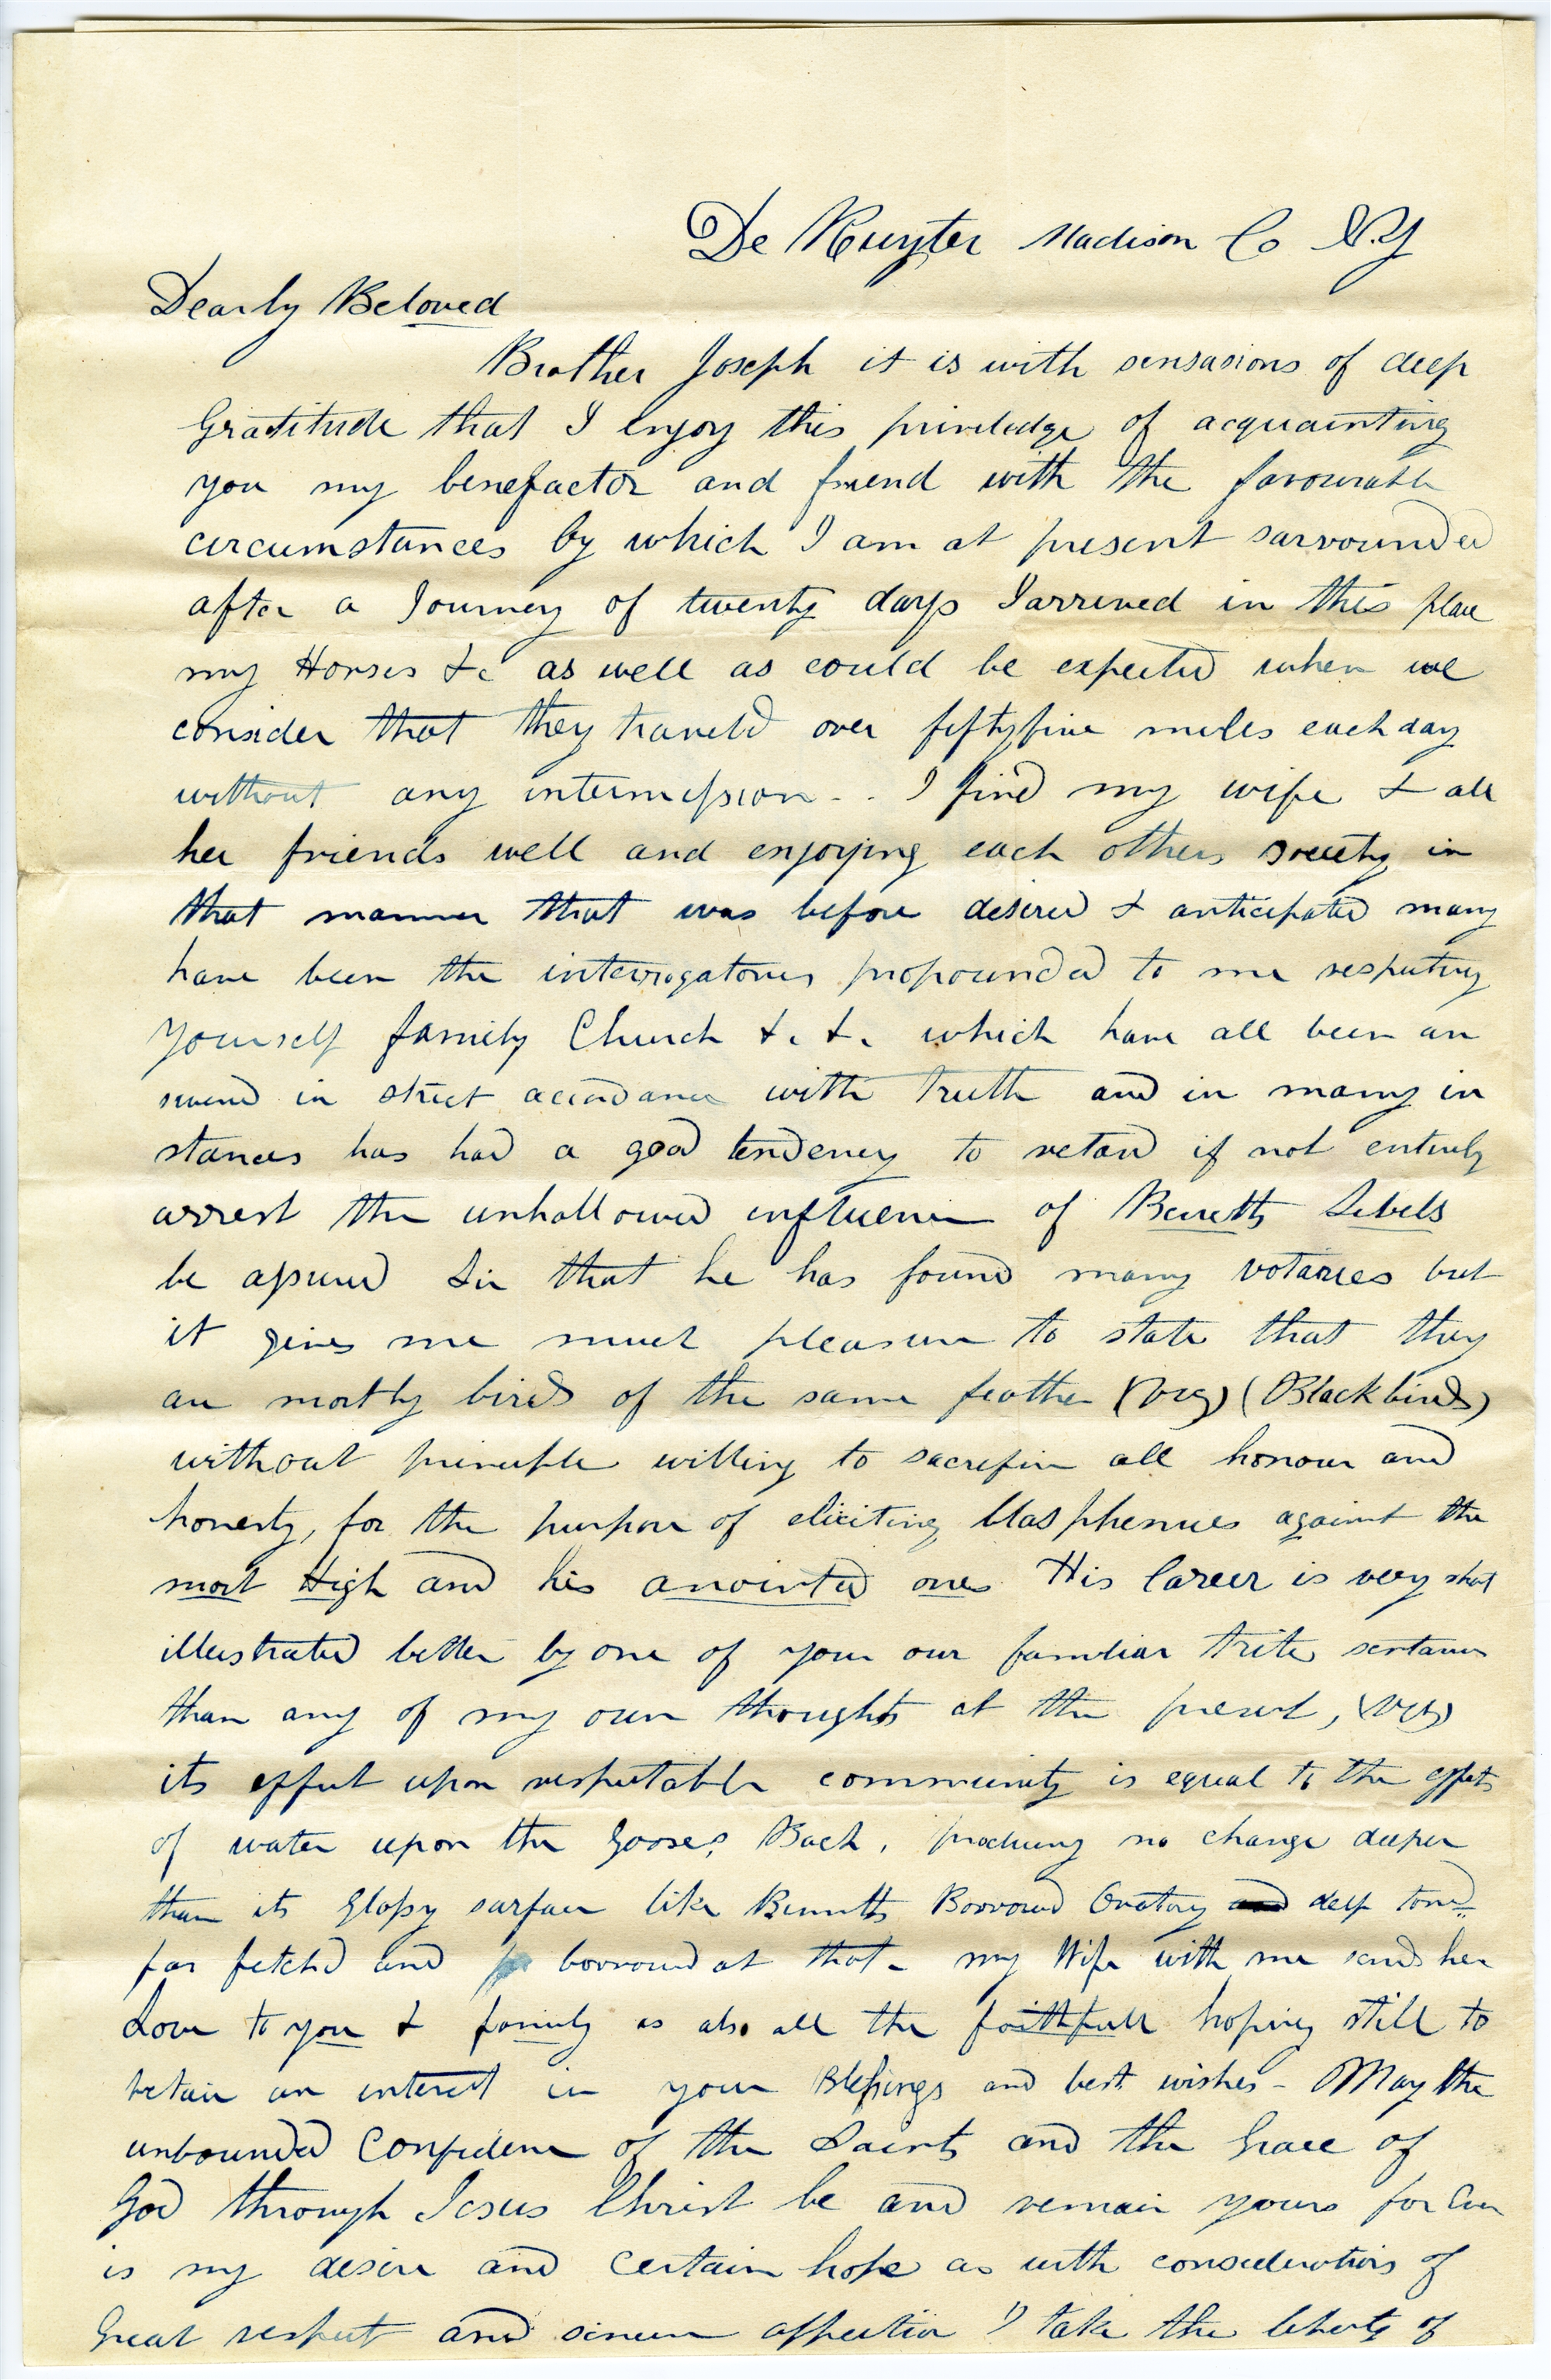 De Ruyter Madison Co N.Y
Dearly Beloved
Brother Joseph it is with sensasions of deep
Gratitude that I enjoy this priviledge of acquainting
you my benefactor and friend with the favourable
circumstances by which I am at present sarrounded
after a Journey of twenty days I arrived in this place
my Horses &c as well as could be expected when we
consider that they traveld over fifty five miles each day
without any intermission - . I find my wife & all
her friends well and enjoying each others society in
that manner that was before desired & anticipated many
have been the interrogatories propounded to me respecting
yourself family Church &. &. which have all been an
swered in strict accordance with truth and in many in
stances has had a good tendency to retard if not entirely
arrest the unhallowed influence of Bennetts Libels
be assured Sir that he has found many votaries but
it gives me much pleasure to state that they
are mostly birds of the same feather (viz) (Blackbirds)
without principle willing to sacrefice all honour and
honesty, for the purpose of eliciting blasphemies against the
most High and his anointed ones His Career is very short
illustrated better by one of your our familiar trite sentances
than any of my own thoughts at the present, (viz)
its effect upon respectable community is equal to the effects
of water upon the Gooses Back, producing no change deeper
than its Glossy surface like Bennetts Borrowed Oratory and deep toned
far fetchd and borrowed at that - my Wife with me sends her
Love to you & family as also all the faithfull hoping still to
retain an interest in your Blessings and best wishes - May the
unbounded Confidence of the Saints and the Grace of
God through Jesus Christ be and remain yours for Ever
is my desire and Certain hope as with considerations of
Great respect and sincere affection I take the liberty of